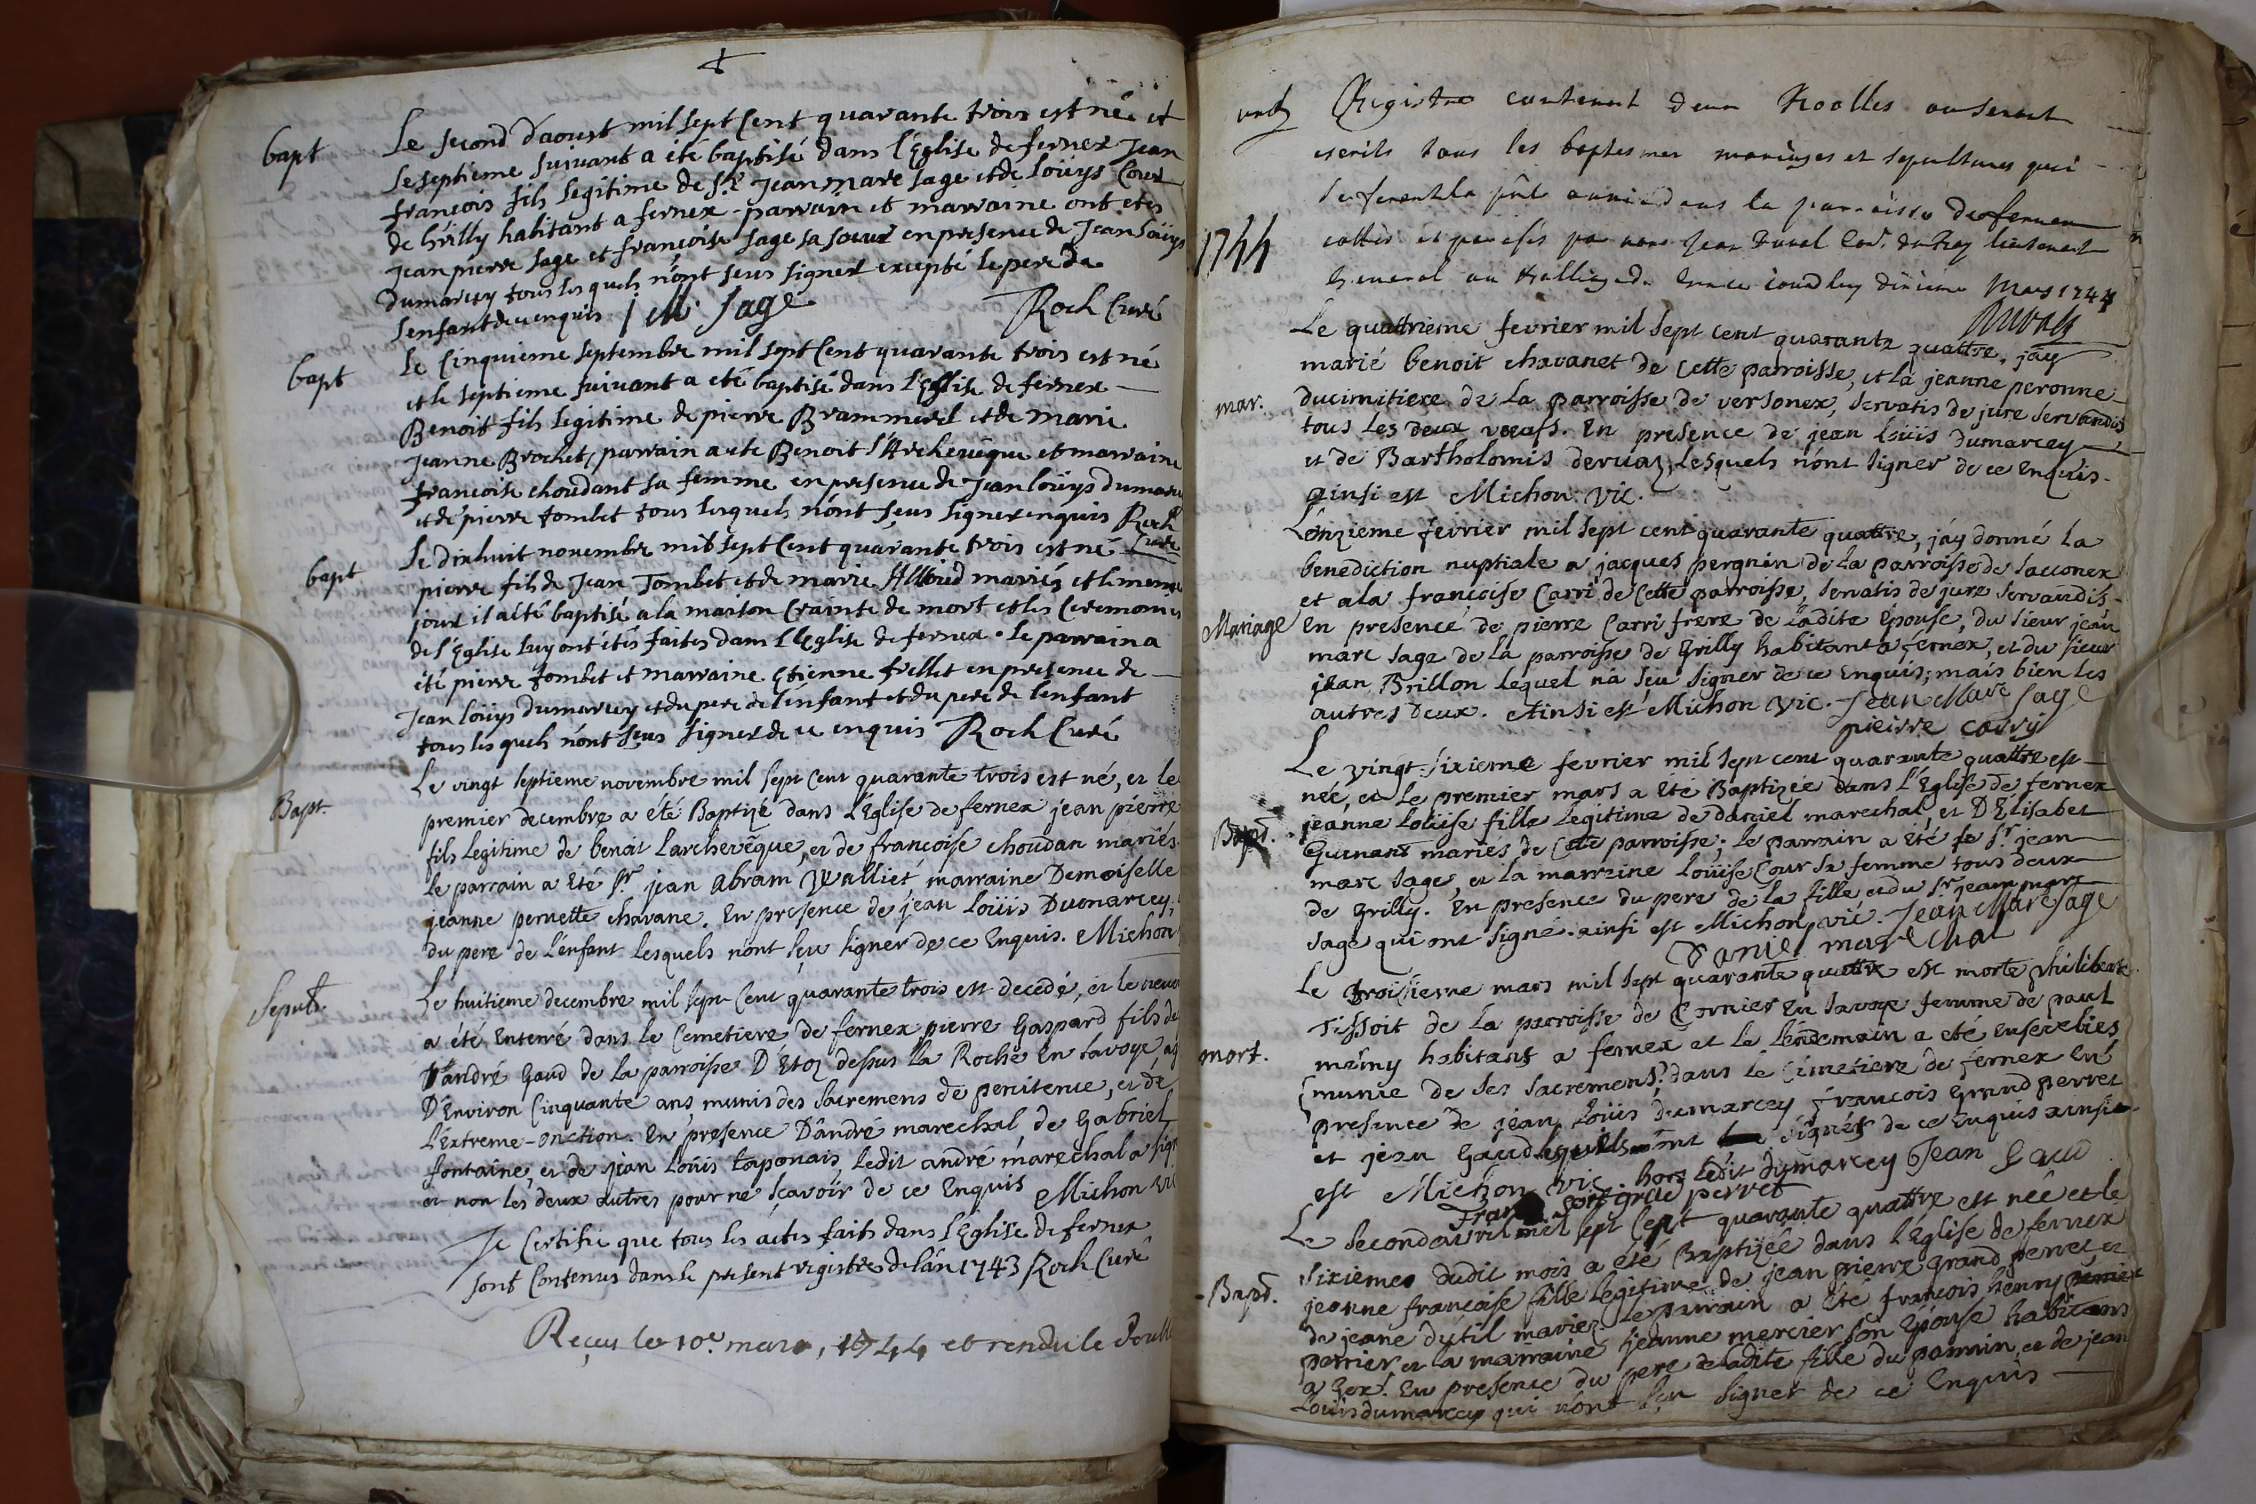 bapt
Le second d'aoust mil sept Cent quarante trois est né et
le septieme suivant a été baptisé dans l'Eglise de fernex Jean
françois fils legitime de Sr. Jean marc sage et de Loüys Cour
de Grilly habitant a fernex parrain et marraine ont etés
Jean pierre Sage et françoise sage sa soeur en presence de Jean Loüys
dumarcey tous lesquels n'ont seus signer excepté le pere de
l'enfant de ce enquis J M Sage Roch Curé
bapt
Le Cinquieme septembre mil sept Cent quarante trois est né
et le septieme suivant a eté baptisé dans l'Eglise de fernex
Benoit fils legitime de pierre Brammerel et de marie
Jeanne Brochet, parrain a ete Benoit l'Archeveque et marraine
francoise choudant sa femme en presence de Jean Loüys dumarc
et de pierre tombet tous lesquels n'ont seus signer enquis Roch
Curé
bapt
Le dixhuit novembre mil sept Cent quarante trois est né
pierre fils de Jean Tombet et de marie mariés et le meme
jour il a eté baptisé a la maison Crainte de mort et les Ceremonies
de l'Eglise luy ont étés faites dans l'Eglise de fernex. le parrain a
été pierre tombet et marraine Etienne frillet en presence de
Jean loüys dumarcey et du pere de l'enfant et du pere de l'enfant
tous lesquels n'ont seus signer de ce enquis Roch Curé
Bapt.
Le vingt septieme novembre mil sept Cent quarante trois est né, et le
premier decembre a eté Baptizé dans l'Eglise de fernex jean pierre
fils legitime de benoit Larcheveque, et de francoise choudan mariés.
le parrain a eté Sr. jean abram Walliet marraine Demoiselle
jeanne pernette chavane. En presence de jean Loüis Dumarcey,
du pere de L'enfant Lesquels n'ont sçu signer de ce Enquis. Michon
Sepult.
Le huitieme decembre mil sept Cent quarante trois est decedé, et le neuv
a été Enterré dans le Cemetiere de fernex pierre Gaspard fils de
D'andré Gaud de La parroisse D'Etoz dessus La Roche En Savoye, ag
D'Environ Cinquante ans munis des Sacremens de penitence, et de
L'Extreme-onction. En presence D'andré marechal, de Gabriel
fontaine, et de jean Loüis taponais, ledit andré marechal a sign
et non les deux autres pour ne sçavoir de ce Enquis Michon vic
Je Certifie que tous les actes faits dans l'Eglise de fernex
sont Contenus dans le present registre de l'an 1743 Roch Curé
Reçu le 10e. mars, 1744 et rendu le Doubl
1744
Registre contenant deux Roolles ou seront
escrits tous les baptesmes mariages et sepultures qui
se feront la pnte année dans la parroisse de fernex
cottés et paraffés par nous Jean Duval Conr. du Roy lieutenant
General au Balliage de ce jourdhuy dixieme Mars 1744
Duval
mar.
Le quattrieme fevrier mil sept cent quarante quattre, j'ay
marié benoit chavanet de Cette parroisse, et la jeanne peronne
ducimitiere de La parroisse de versonex, servatis de jure servandis
tous Les deux voeufs. En presence de jean Loüis dumarcey
et de Bartholomis dervaz, Lesquels n'ont signer de ce Enquis.
ainsi est Michon vic.
Mariage
L'onzieme fevrier mil sept cent quarante quattre, j'ay donné La
benediction nuptiale a jacques pergnin de La parroisse de Sacconex
et a La françoise Carri de Cette parroisse, servatis de jure servandis
En presence de pierre Carri frere de Ladite Epouse, du sieur jean
marc sage de La parroisse de Grilly habitant a fernex, et du sieur
jean Brillon Lequel n'a seu signer de ce Enquis; mais bien Les
autres deux. Ainsi est Michon vic. Jean Marc Sage
pieirre carry
Bapt.
Le vingt-sixieme fevrier mil sept cent quarante quattre est
née, et Le premier mars a Eté Baptizée dans L'Eglise de fernex
jeanne Loüise fille Legitime de daniel marechal, et D'Elisabet
Guenant mariés de Cette parroisse; Le parrain a Eté le Sr. jean
marc sage, et La marraine Loüise Cour sa femme tous deux
de Grilly. En presence du pere de La fille et du Sr. jean marc
sage qui ont signé. ainsi est Michon, vic. Jean Marc Sage
Daniel marechal
mort.
Le troisieme mars mil sept quarante quattre est morte philiberte
Tissoit de La parroisse de Cornier En Savoye femme de paul
mémy habitant a fernex et Le Lendemain a eté Ensevelies
munie de ses sacremens, dans Le Cimetiere de fernex En
presence de jean Loüis dumarcey françois Grand perret
et jean Gaud Lequels n'ont signés de ce Enquis ainsi
est Michon vic hors Ledit dumarcey Jean Gaud
Fran Grae perret
Bapt.
Le Second avril mil sept Cent quarante quattre est née et le
sixiemes dudit mois a eté Baptizée dans L'Eglise de fernex
jeanne françoise fille Legitime de jean pierre grand perret et
de jeane dutil mariez Le parrain a Eté françois henry perrier
perrier et la marraine jeanne mercier son Epouse habitans
a Gex. En presence du pere de ladite fille du parrain, et de jean
Loüis dumarcey qui n'ont sçu signer de ce Enquis